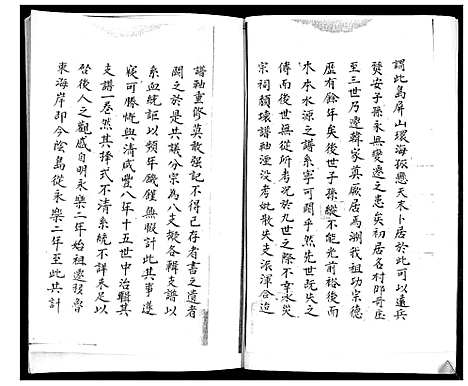 謂此島屏山環海孤懸天末卜居於此可以遠兵
燹安子孫永無變遷之患矣初居各村即奇庄
至三世乃遷韓家莫厥居焉溯我祖功宗德
歷有餘年矣後世子孫縱不能光前裕後而
木本水源之譜系寧可闕乎然先世既失之
傳而後世無從所考況於九世之際不幸水災
宗祠頹壞譜紬湮沒考妣散失支派渾合迨
譜紬重修莫敢強記不得已存者書之遺者
闕之於是共議分宗為八支俶各輯支譜以
系血統詎以頻年饑饉無暇計此其事遂
寢可勝慨與清咸豐八年十五世中治輯其
支譜一卷然其擇式不清系統不詳未足以
啓後人之觀感自明永樂二年始祖遷移
東海岸即今陰島從永樂二年至此共計